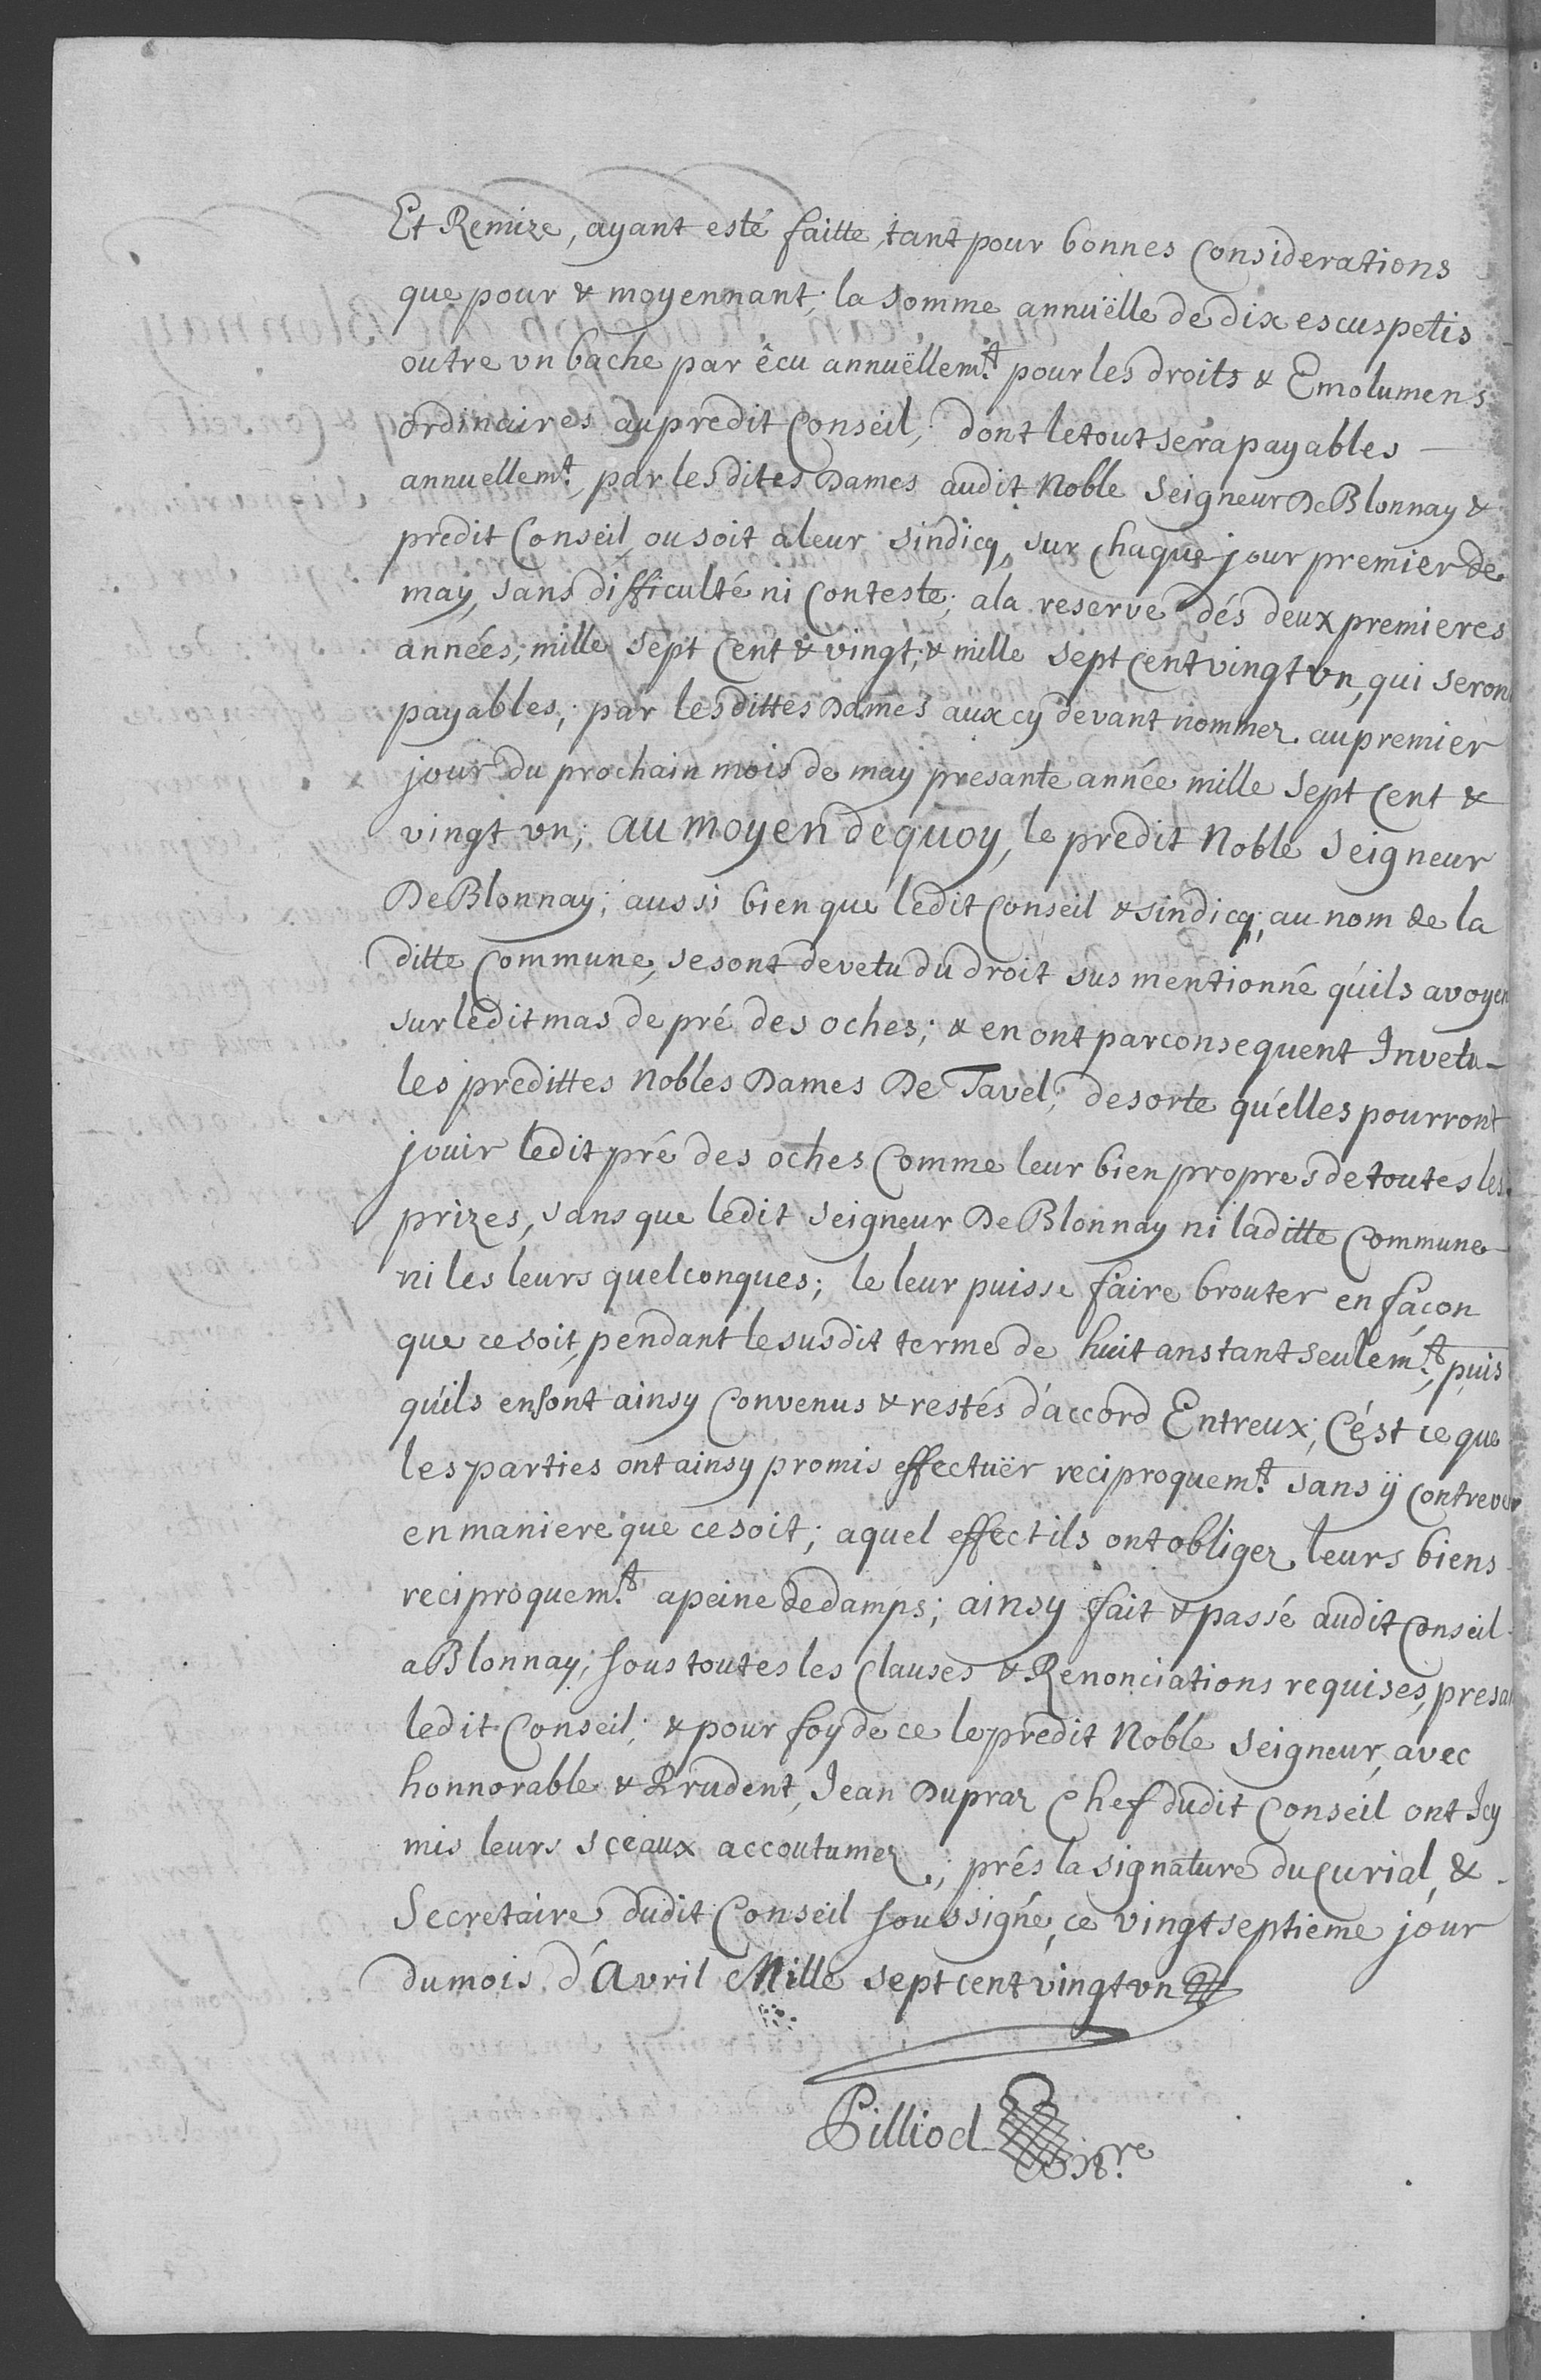 Et Remize, ayant esté faitte, tant pour bonnes Considerations
que pour & moyennant; la somme annuëlle de dix escus petis
outre vn bache par êcu annuëllemt. pour les droits & Emolumens
ordinaires au predit Conseil; dont le tout sera payables
annuellemt. par lesdites Dames audit Noble Seigneur De Blonnay &
predit Conseil, ou soit a leur sindicq, sur chaque jour premier de
may, sans difficulté ni Conteste; a la reserve dés deux premieres
années, mille sept Cent & vingt, & mille sept Cent vingt vn, qui seront
payables, par lesdittes Dames aux cy devant nommez au premier
jour du prochain mois de may presante année mille sept Cent &
vingt vn; au moyen dequoy, le predit Noble Seigneur
De Blonnay; aussi bien que ledit Conseil & sindicq; au nom de la
ditte Commune, se sont devetu du droit sus mentionné qu'ils avoyen
sur ledit mas de pré des oches; & en ont par consequent Invetu
les predittes Nobles Dames De Tavel; de sorte qu'elles pourront
jouir ledit pré des oches Comme leur bien propres de toutes les
prizes, sans que ledit Seigneur De Blonnay ni laditte Commune
ni les leurs quelconques; le leur puisse faire brouter en façon
que ce soit, pendant le susdit terme de huit ans tant seulemt., puis
qu'ils en sont ainsy Convenus & restés d'accord Entreux; C'ést ce que
les parties ont ainsy promis effectuër reciproquemt. sans ÿ Contreven
en maniere que ce soit; a quel effect ils ont obligez leurs biens
reciproquemt. a peine de damps; ainsy fait & passé audit Conseil
a Blonnay; sous toutes les Clauses & Renonciations requises, presat
ledit Conseil; & pour foy de ce le predit Noble Seigneur, avec
honnorable & Prudent, Jean Dupraz Chef dudit Conseil ont Icy
mis leurs sceaux accoutumez; prés la signature du Curial, &
Secretaire dudit Conseil soussigné, ce vingt septieme jour
du mois d'Avril Mille sept cent vingt vn
Pilliod